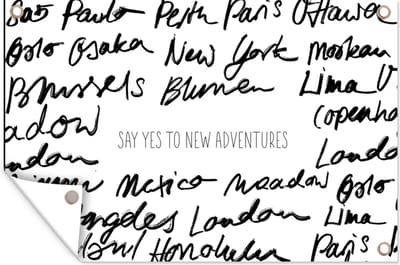 Sao Paulo Perth Paris Ottawa
Oslo Osaka New York
Brussels Blumen Lima
Copenha
adow
SAY YES TO NEW ADVENTURES
ndon Londo
Mexico Meadow Oslo
ngeles London Lima
Honolulu Paris